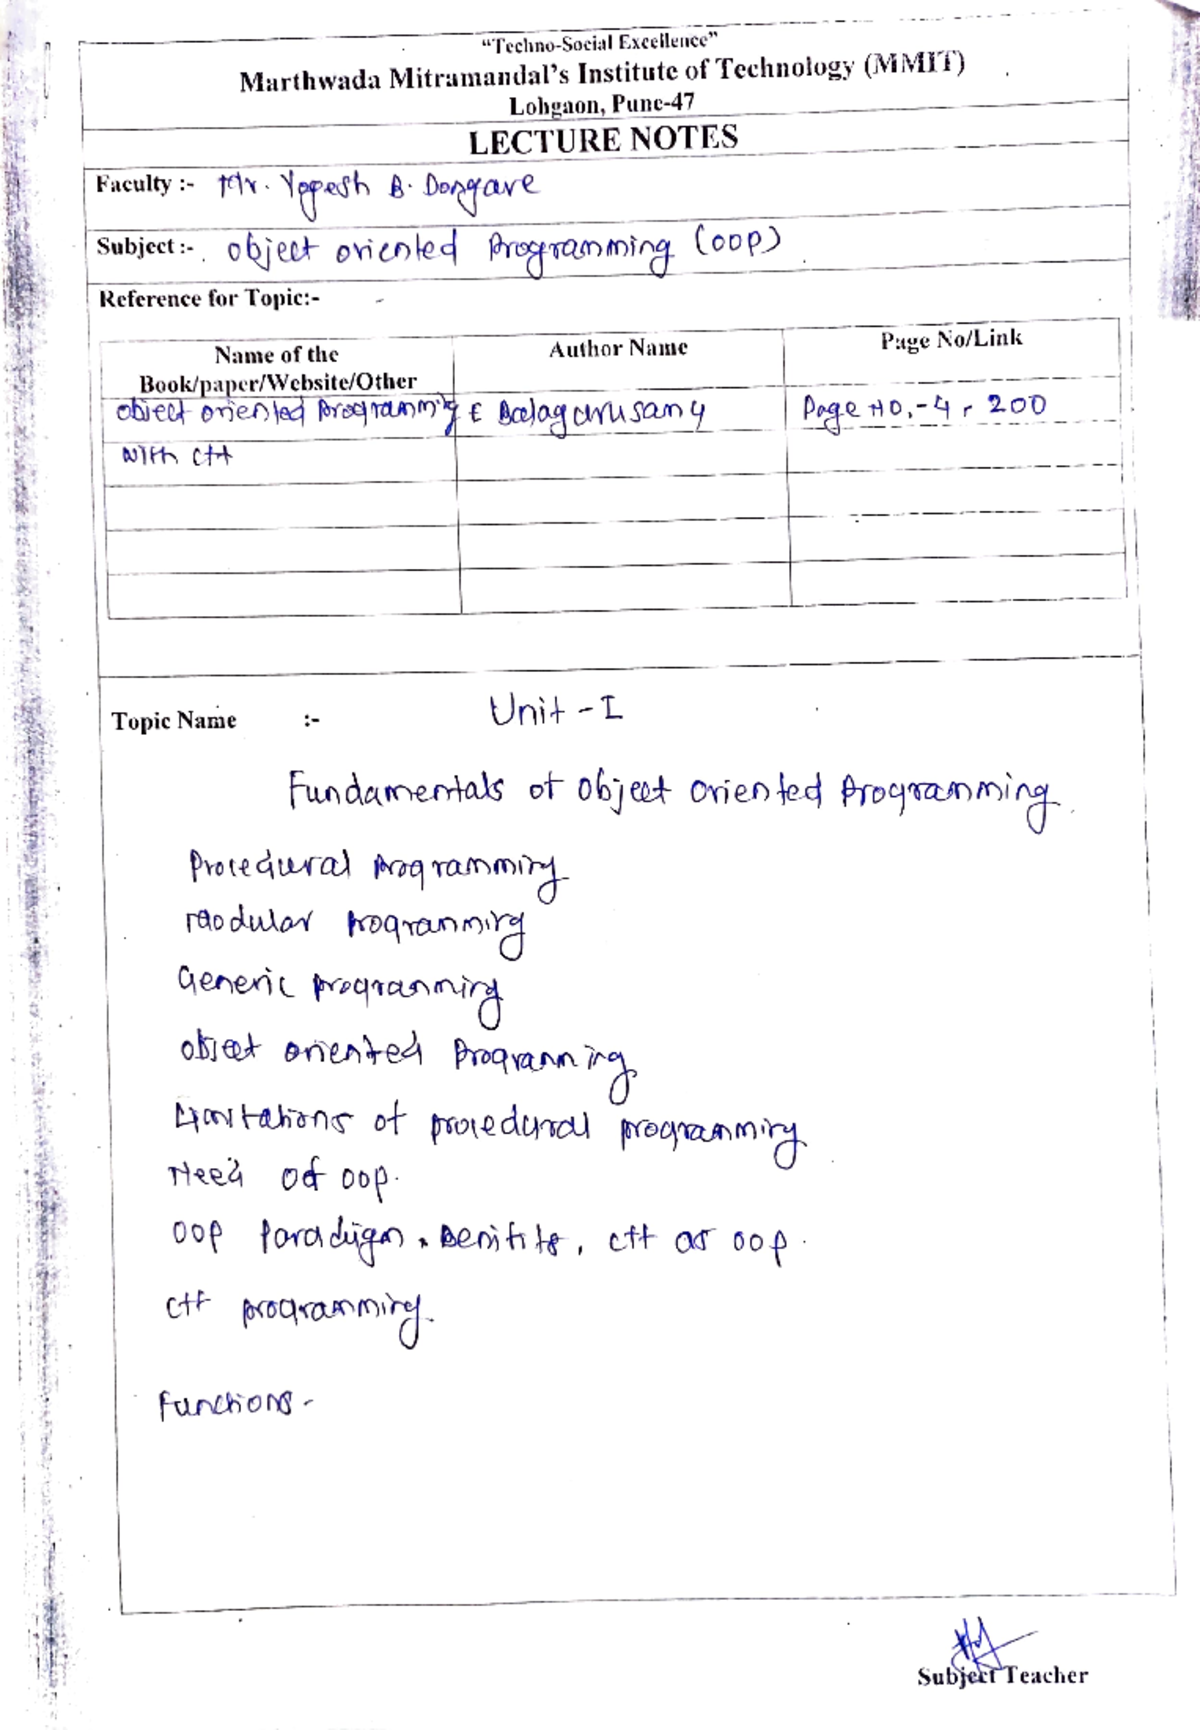 “Techno-Social Excellence”
Marthwada Mitramandal’s Institute of Technology (MMIT)
Lohgaon, Pune-47
LECTURE NOTES
Faculty :- Mr. Yogesh B. Dongare
Subject :- Object oriented Programming (OOP)
Reference for Topic:- -
Name of the Book/paper/Website/Other Author Name Page No/Link
Object oriented Programming E Balagurusamy Page No.-4, 200
with C++
Topic Name :- Unit - I
Fundamentals of Object Oriented Programming.
Procedural Programming
Modular Programming
Generic programming
Object oriented Programming
Limitations of procedural programming
Need of OOP.
OOP Paradigm, Benifits, C++ as OOP.
C++ programming.
Functions -
Subject Teacher